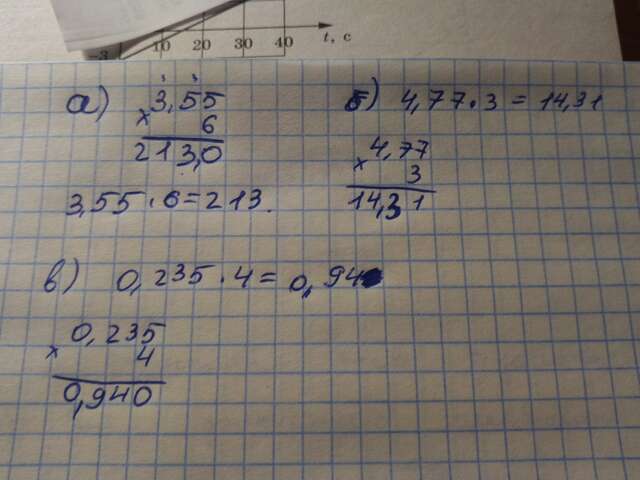 -3
10 20 30 40 t, с
а) 3,55
× 6
213,0
3,55 · 6 = 213.
б) 4,77 · 3 = 14,31
4,77
× 3
14,31
в) 0,235 · 4 = 0,94
0,235
× 4
0,940